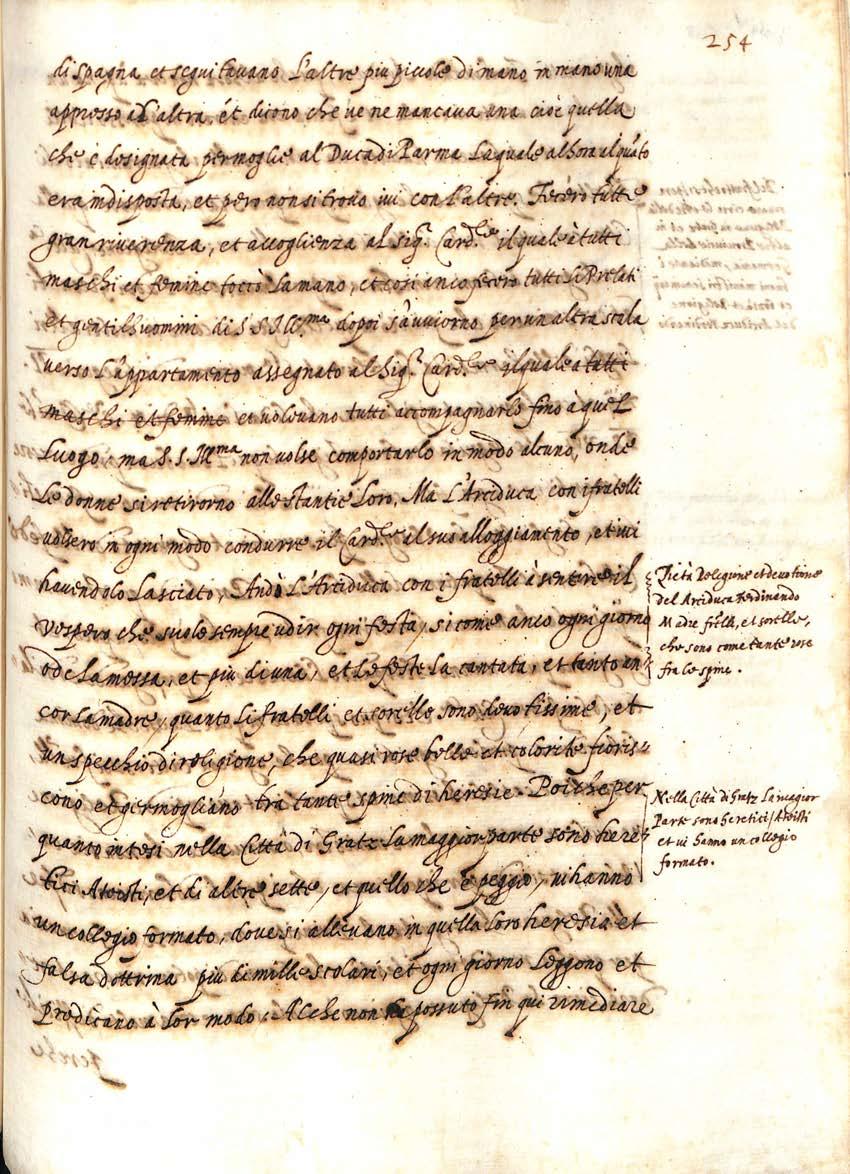 254
di spagna et seguitavano l'altre piu piccole di mano in mano una
appresso al'altra, ét dicono che ve ne mancava una cioè quella
che è dosignata per moglie al Duca di Parma la quale alhora alquāto
era indisposta, et pero non si trovò ivi con l'altre. Fecero tutte
gran riverenza, et accoglienza al sig.r Card.le il quale à tutti
maschi et femine toccò la mano, et cosi anco fecero tutti li Prelati
et gentilhuomini di S. S. Ill.ma dopoi s'avviorno per un altra scala
verso l'appartamento assegnato al Sig.r Card.le il quale a tutti
maschi et femine et volevano tutti accompagnarlo fino à quel
luogo: ma S. S. Ill.ma non volse comportarlo in modo alcuno, onde
le donne si retirorno alle stantie loro, Ma l'Arciduca con i fratelli
volsero in ogni modo condurre il Card.le al suo alloggiamento, et ivi
havendolo lasciato, Andò l'Arciduca con i fratelli à sentire il
vespero che suole sempre udir ogni festa, si come anco ogni giorno
ode la messa, et più di una, et le feste la cantata, et tanto an
cor la madre, quanto li fratelli et sorelle sono devotissime, et
un specchio di religione, che quasi rose belle et colorite fioris
cono et germogliano tra tante spine di heresie. Poi che per
quanto intesi nella Città di Gratz la maggior parte sono here
tici Ateisti, et di altre sette, et quello che è peggio, vi hanno
un collegio formato, dove si allevano in quella loro heresia et
falsa dottrina più di mille scolari, et ogni giorno leggono et
Predicano à lor modo: Al che non ha possuto fin qui rimediare
perche
Pietà Religione et devotione
del Arciduca Ferdinando
Madre frēlli, et sorelle,
che sono come tante rose
fra le spine.
Nella Città di Gratz la magior
Parte sono heretici Ateisti
et vi hanno un collegio
formato.